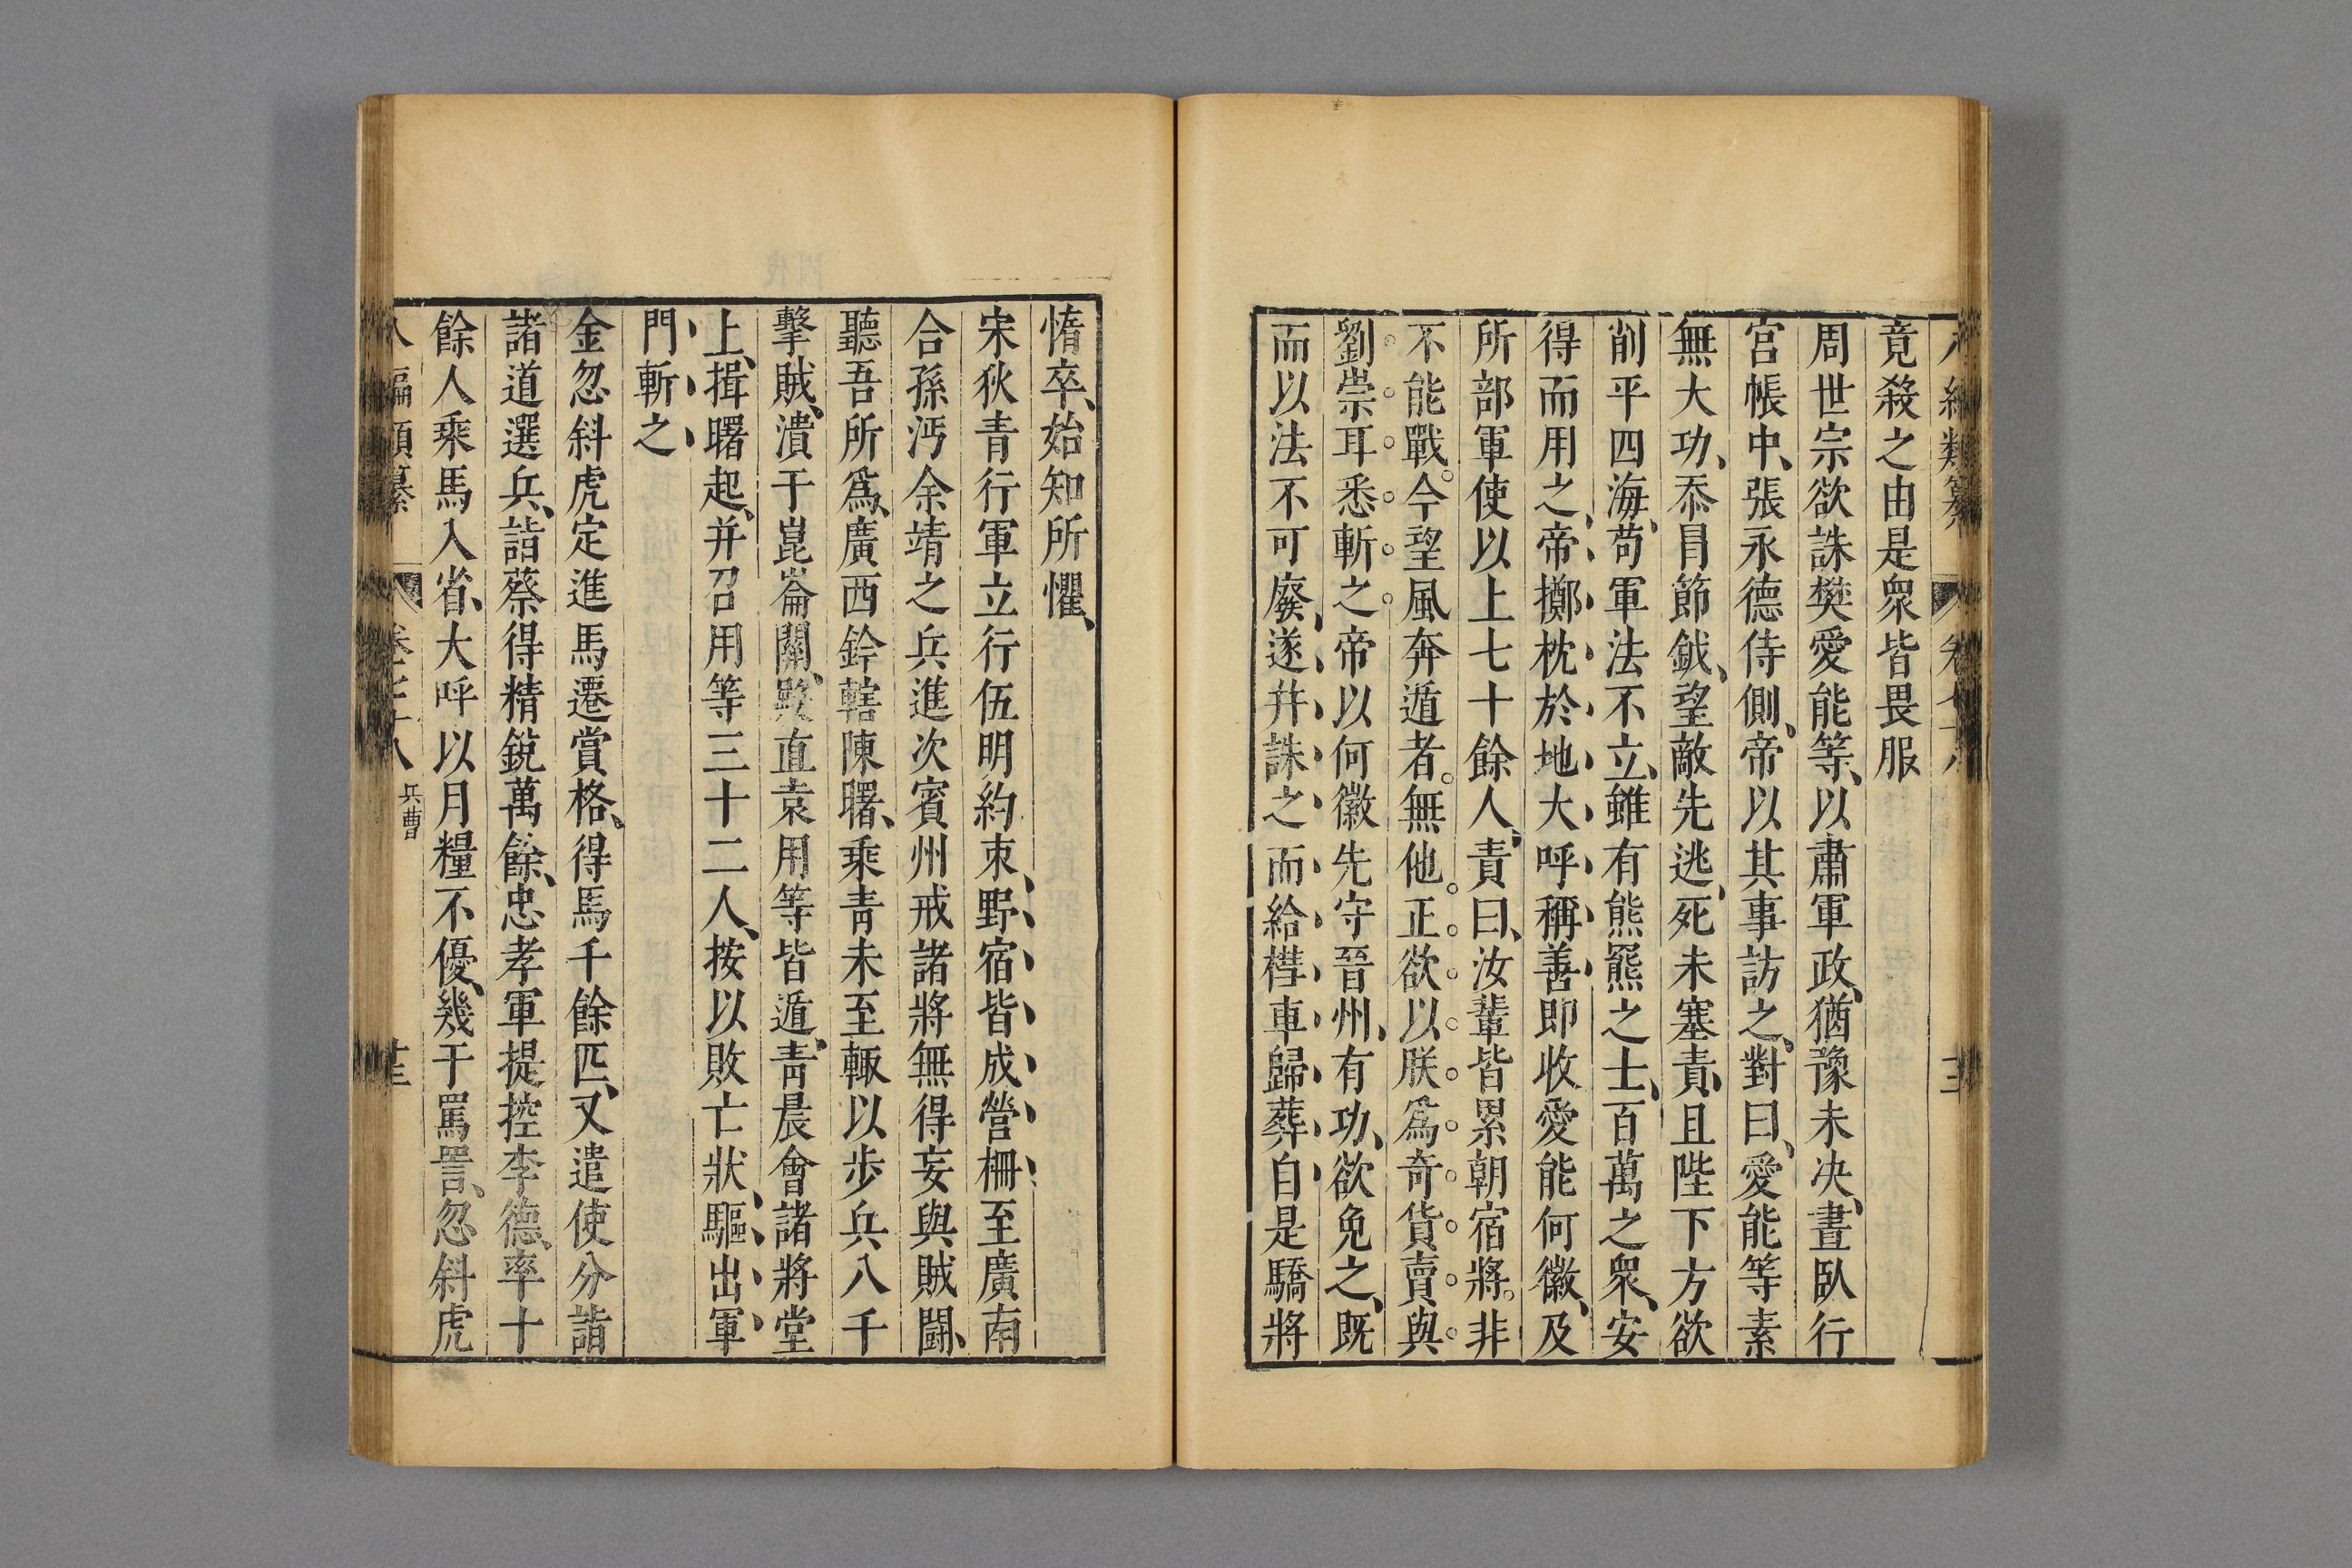 竟殺之由是衆皆畏服
周世宗欲誅樊愛能等、以肅軍政、猶豫未决、晝臥行
宮帳中、張永德侍側、帝以其事訪之、對曰、愛能等素
無大功、忝冐節鉞、望敵先逃、死未塞責、且陛下方欲
削平四海、苟軍法不立、雖有熊羆之士、百萬之衆、安
得而用之、帝擲枕於地大呼稱善即收愛能何徽、及
所部軍使以上七十餘人、責曰、汝輩皆累朝宿將。非
不能戰。今望風奔遁者。無他。正欲以朕爲奇貨賣與
劉崇耳悉斬之帝以何徽先守晉州、有功、欲免之、既
而以法不可廢、遂并誅之而給槥車歸葬自是驕將
惰卒、始知所懼、
宋狄青行軍立行伍明約束、野宿皆成營柵至廣南
合孫沔余靖之兵進次賓州戒諸將無得妄與賊鬪、
聽吾所爲、廣西鈐轄陳曙、乘青未至輙以步兵八千
擊賊、潰于崑崙關、殿直袁用等皆遁、青晨會諸將堂
上、揖曙起、并召用等三十二人、按以敗亡狀、驅出軍
門斬之
金忽斜虎定進馬遷賞格、得馬千餘匹、又遣使分詣
諸道選兵、詣蔡得精銳萬餘、忠孝軍提控李德、率十
餘人乘馬入省、大呼以月糧不優、幾于罵詈、忽斜虎
八編類纂 卷七十八 兵曹